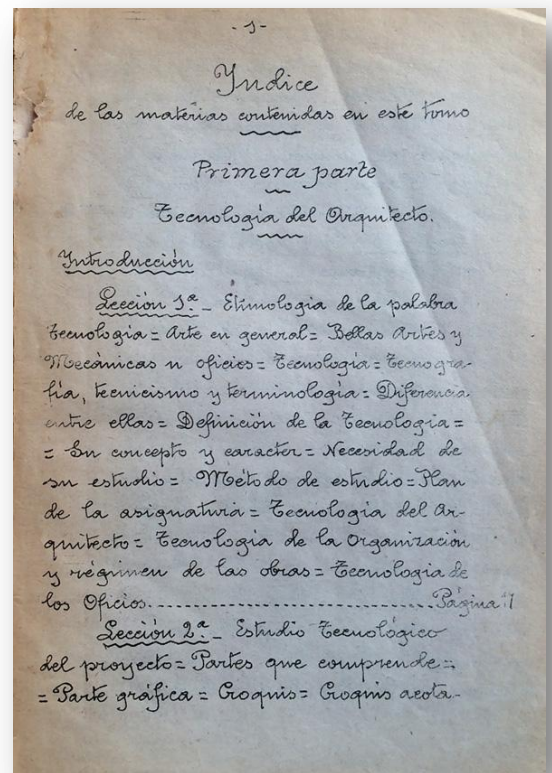 - 1 -
Yndice
de las materias contenidas en este tomo
Primera parte
Tecnología del Arquitecto.
Introducción
Lección 1ª - Etimologia de la palabra
tecnologia = Arte en general = Bellas Artes y
Mecánicas u oficios = Tecnología = Tecnogra-
fía, tecnicismo y terminología = Diferencia
entre ellas = Definición de la Tecnologia =
= Su concepto y caracter = Necesidad de
su estudio = Método de estudio = Plan
de la asignatura = Tecnología del Ar-
quitecto = Tecnología de la Organización
y régimen de las obras = Tecnologia de
los Oficios. - - - - - - - - - - - - - - - - - - - - Página 11
Lección 2ª - Estudio Tecnológico
del proyecto = Partes que comprende =
= Parte gráfica = Croquis = Croquis acota-